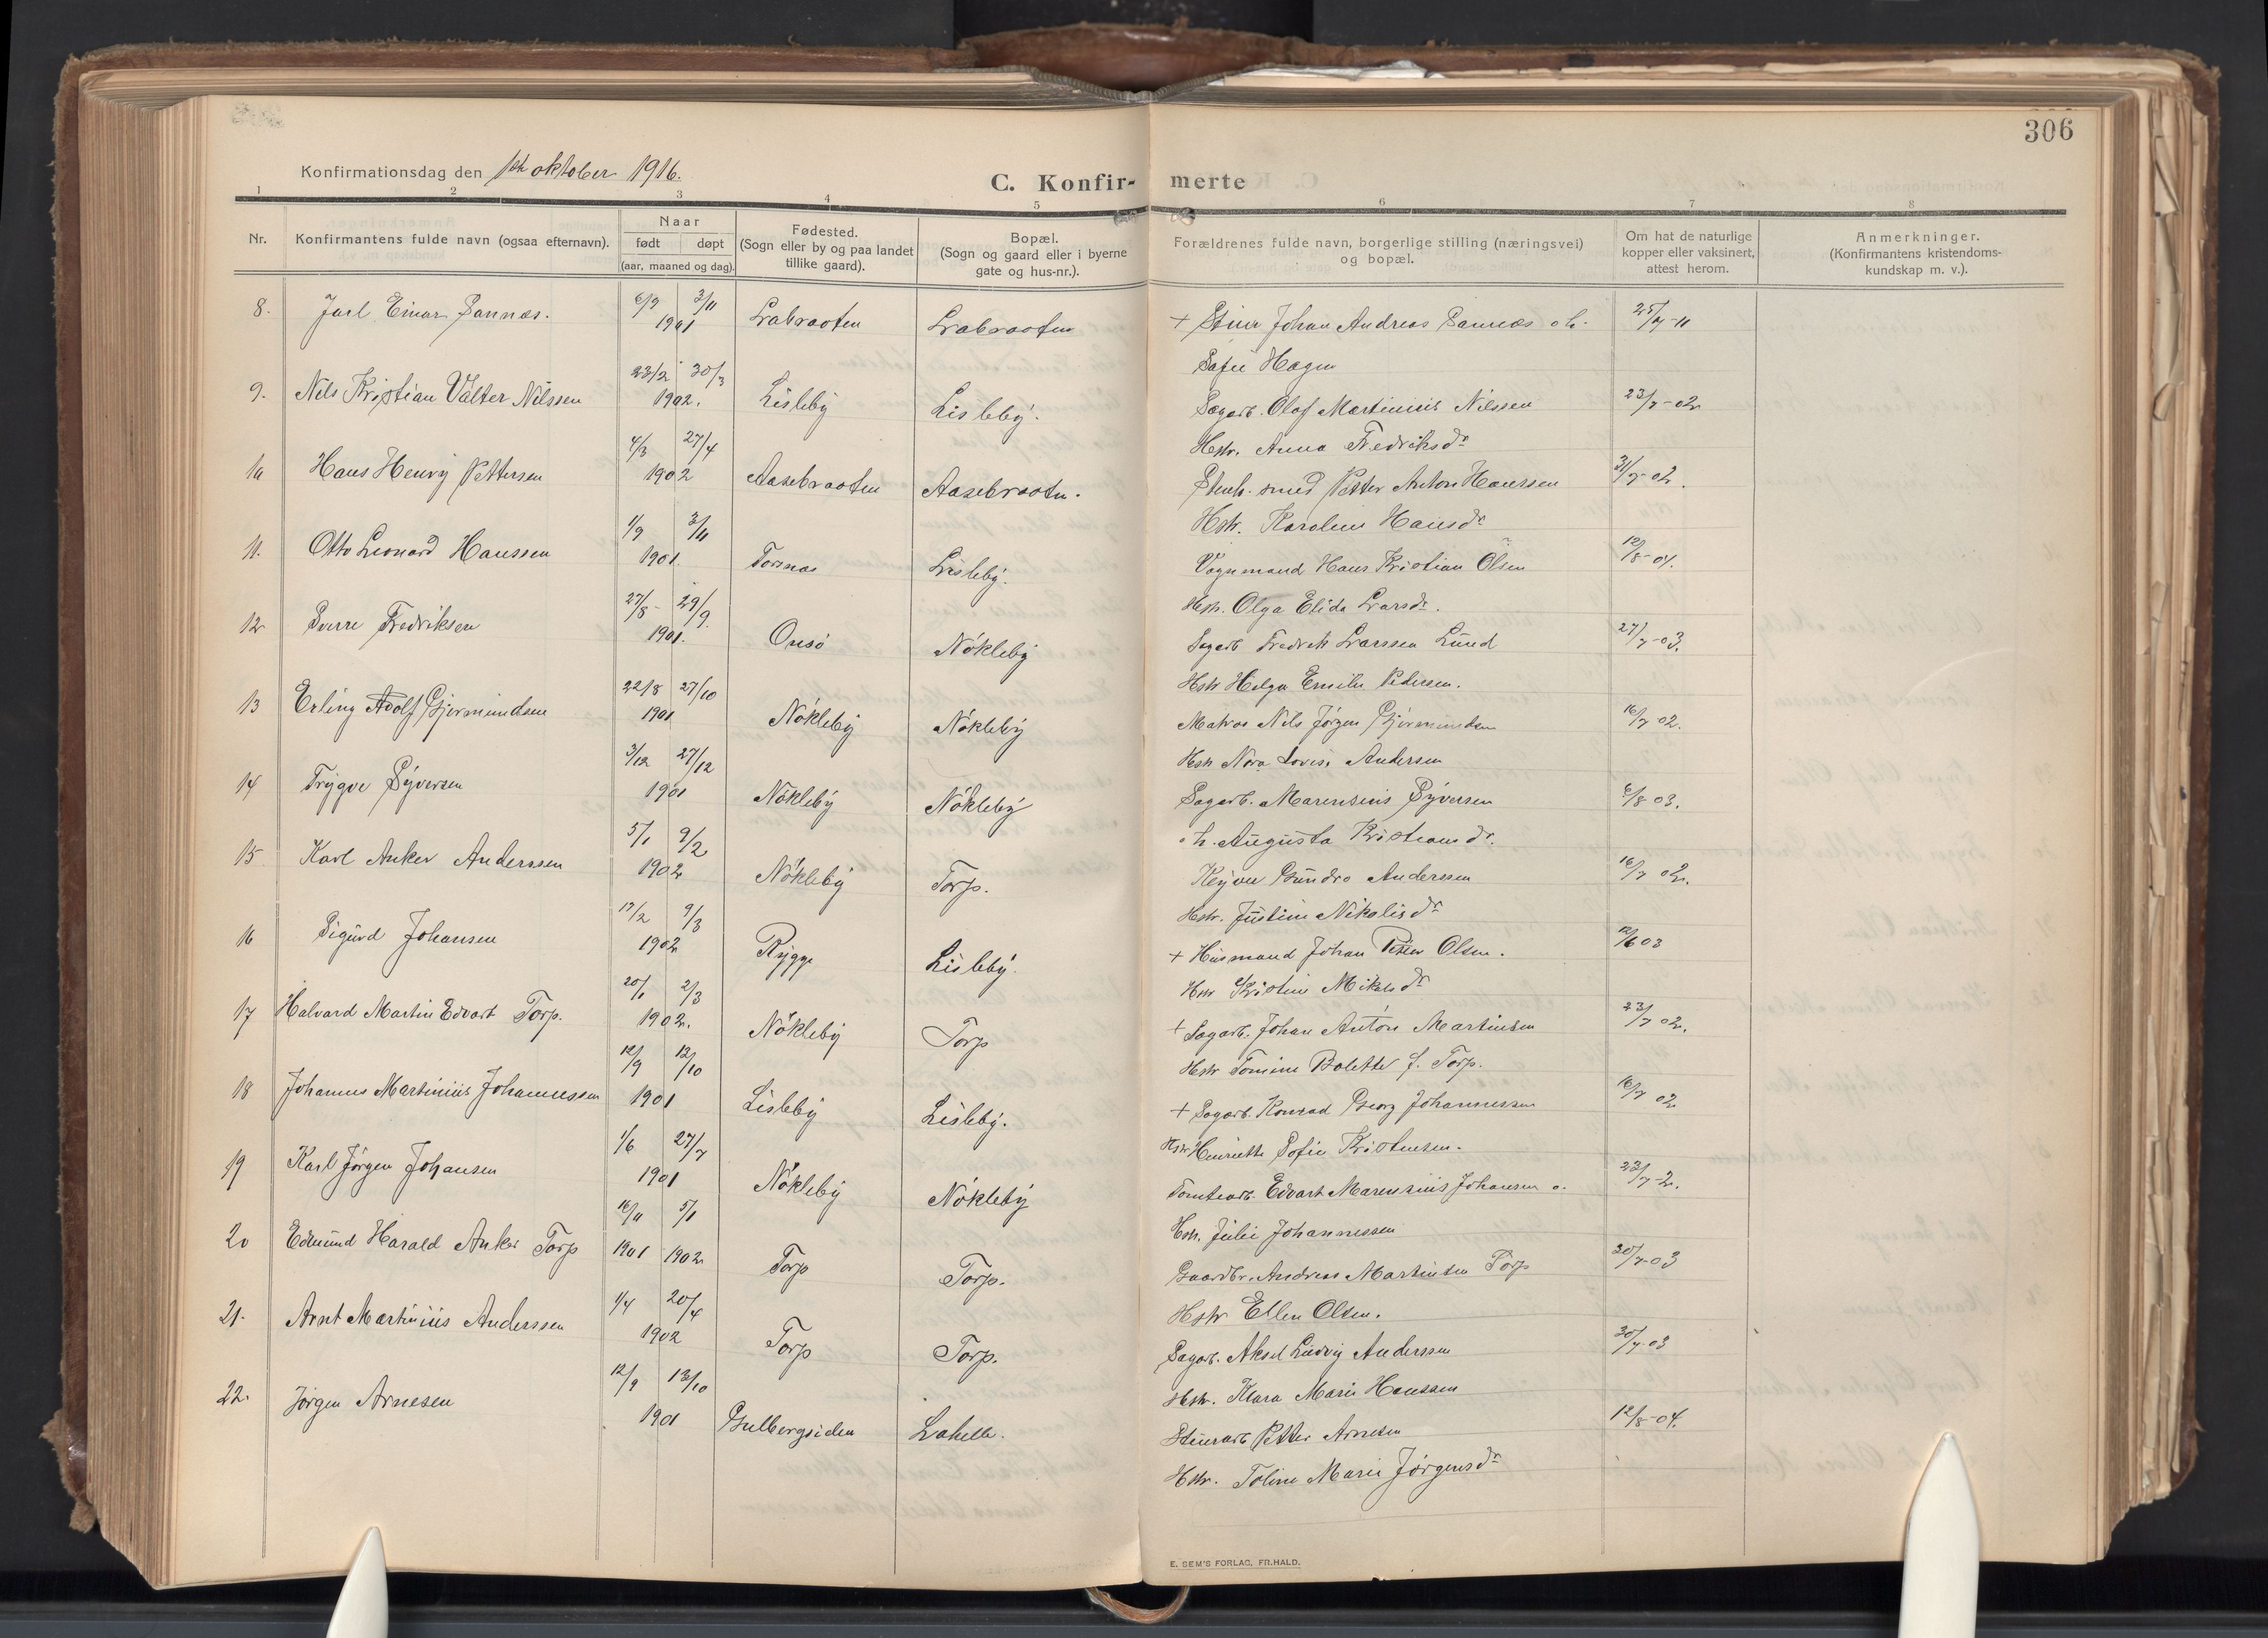 306
Konfirmationsdag den 1ste oktober 1916.
C. Konfir- merte
1 2 3 4 5 6 7 8
Nr.
Konfirmantens fulde navn (ogsaa efternavn).
Naar
født døpt
(aar, maaned og dag).
Fødested.
(Sogn eller by og paa landet
tillike gaard).
Bopæl.
(Sogn og gaard eller i byerne
gate og hus-nr.).
Forældrenes fulde navn, borgerlige stilling (næringsvei)
og bopæl.
Om hat de naturlige
kopper eller vaksinert,
attest herom.
Anmerkninger.
(Konfirmantens kristendoms-
kundskap m. v.).
8. Jarl Einar Sannæs. 6/9 3/11 1901 Labraaten Labraaten + Johan Andreas Sannæs o h. 25/7-11
Sofie Hagen
9. Nils Kristian Valter Nilssen 23/2 30/3 1902. Lisleby Lisleby. Sagarb. Olaf Martinius Nilssen 23/7-02
Hstr. Anna Fredriksdr
10 Hans Henry Pettersen 4/3 27/4 1902 Aasebraaten Aasebraatn. smed Petter Anton Hanssen 31/7-02.
Hstr. Karoline Hansdr
11. Otto Leonard Hanssen 1/9 3/11 1901. Torsnæs Lisleby. Vognmand Hans Kristian Olsen 12/8-04.
Hstr. Olga Elida Larsdr.
12 Sverre Fredriksen 27/8- 29/9. 1901. Onsø Nøkleby Sagarb Fredrik Larssen Lund 27/7-03.
Hstr Helga Emilie Pedersen.
13 Erling Adolf Gjermundsen 22/8 27/10 1901 Nøkleby Nøkleby Matros Nils Jørgen Gjermundsen 16/7 02.
Hstr Nora Lovise Andersen
14 Trygve Syversen 3/12 27/12 1901 Nøkleby Nøkleby Sagarb. Marensius Syversen 6/8 03.
o h. Augusta Kristiansdr.
15 Karl Anker Anderssen 5/1 9/2 1902 Nøkleby Torp. Gundro Anderssen 16/7 02.
Hstr. Justine Nikolisdr
16 Sigurd Johansen 17/2 9/3 1902 Rygge Lisleby. + Husmand Johan Petter Olsen. 12/6 03
Hstr Kristine Mikelsdr
17 Halvard Martin Edvart Torp. 20/1 2/3 1902. Nøkleby Torp + Sagarb. Johan Anton Martinsen 23/7 02.
Hstr Tomine Bolette f. Torp.
18 Johannes Martinius Johannessen 12/9 12/10 1901 Lisleby Lisleby. + Sagarb. Konrad Georg Johannessen 16/7 02
Hstr Henriette Sofie Kristensen.
19 Karl Jørgen Johansen 1/6 27/7 1901 Nøkleby Nøkleby Tomtearb. Edvart Marensius Johansen o. 23/7-2.
Hstr. Julie Johannessen
20 Edmund Harald Anker Torp 16/11 5/1 1901 1902 Torp Torp. Gaardbr. Andreas Martinsen Torp 30/7-03
Hstr Ellen Olsen.
21. Arnt Martinius Anderssen 1/4 20/4 1902 Torp Torp. Sagarb. Aksel Ludvig Anderssen 30/7-03
Hstr. Klara Marie Hanssen
22. Jørgen Arnesen 12/9 13/10 1901 Gulbergsiden Lahelle. Petter Arnesen 12/8-04.
Hstr. Toline Marie Jørgensdr
E. SEM'S FORLAG, FR.HALD.